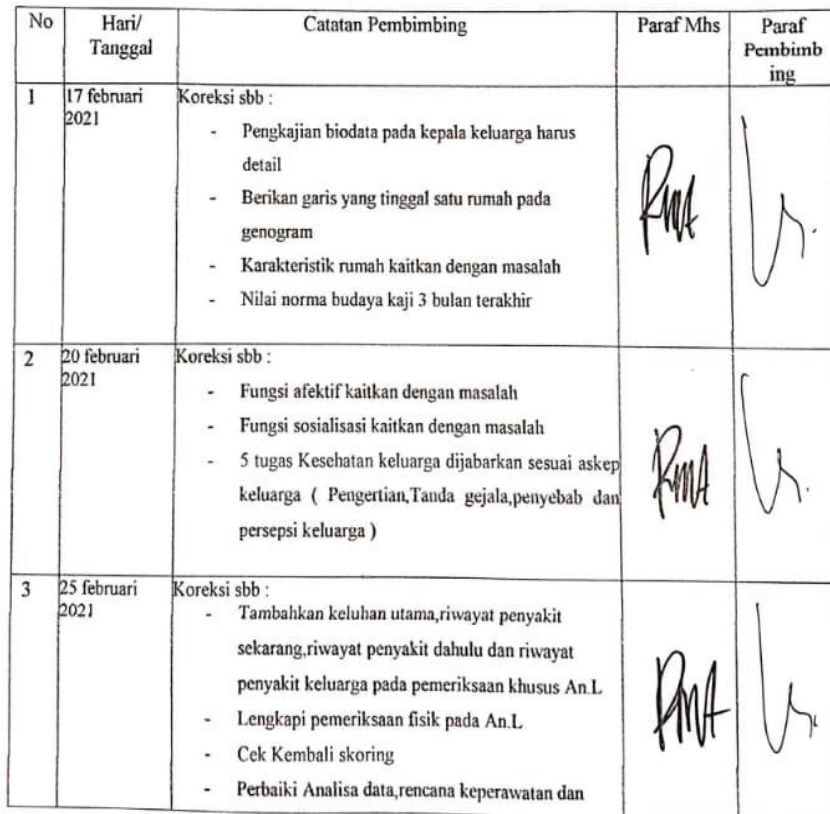 No Hari/ Catatan Pembimbing Paraf Mhs Paraf
Tanggal Pembimb
ing
1 17 februari Koreksi sbb :
2021
- Pengkajian biodata pada kepala keluarga harus
detail
- Berikan garis yang tinggal satu rumah pada
genogram
- Karakteristik rumah kaitkan dengan masalah
- Nilai norma budaya kaji 3 bulan terakhir
2 20 februari Koreksi sbb :
2021
- Fungsi afektif kaitkan dengan masalah
- Fungsi sosialisasi kaitkan dengan masalah
- 5 tugas Kesehatan keluarga dijabarkan sesuai askep
keluarga ( Pengertian,Tanda gejala,penyebab dan
persepsi keluarga )
3 25 februari Koreksi sbb :
2021
- Tambahkan keluhan utama,riwayat penyakit
sekarang,riwayat penyakit dahulu dan riwayat
penyakit keluarga pada pemeriksaan khusus An.L
- Lengkapi pemeriksaan fisik pada An.L
- Cek Kembali skoring
- Perbaiki Analisa data,rencana keperawatan dan